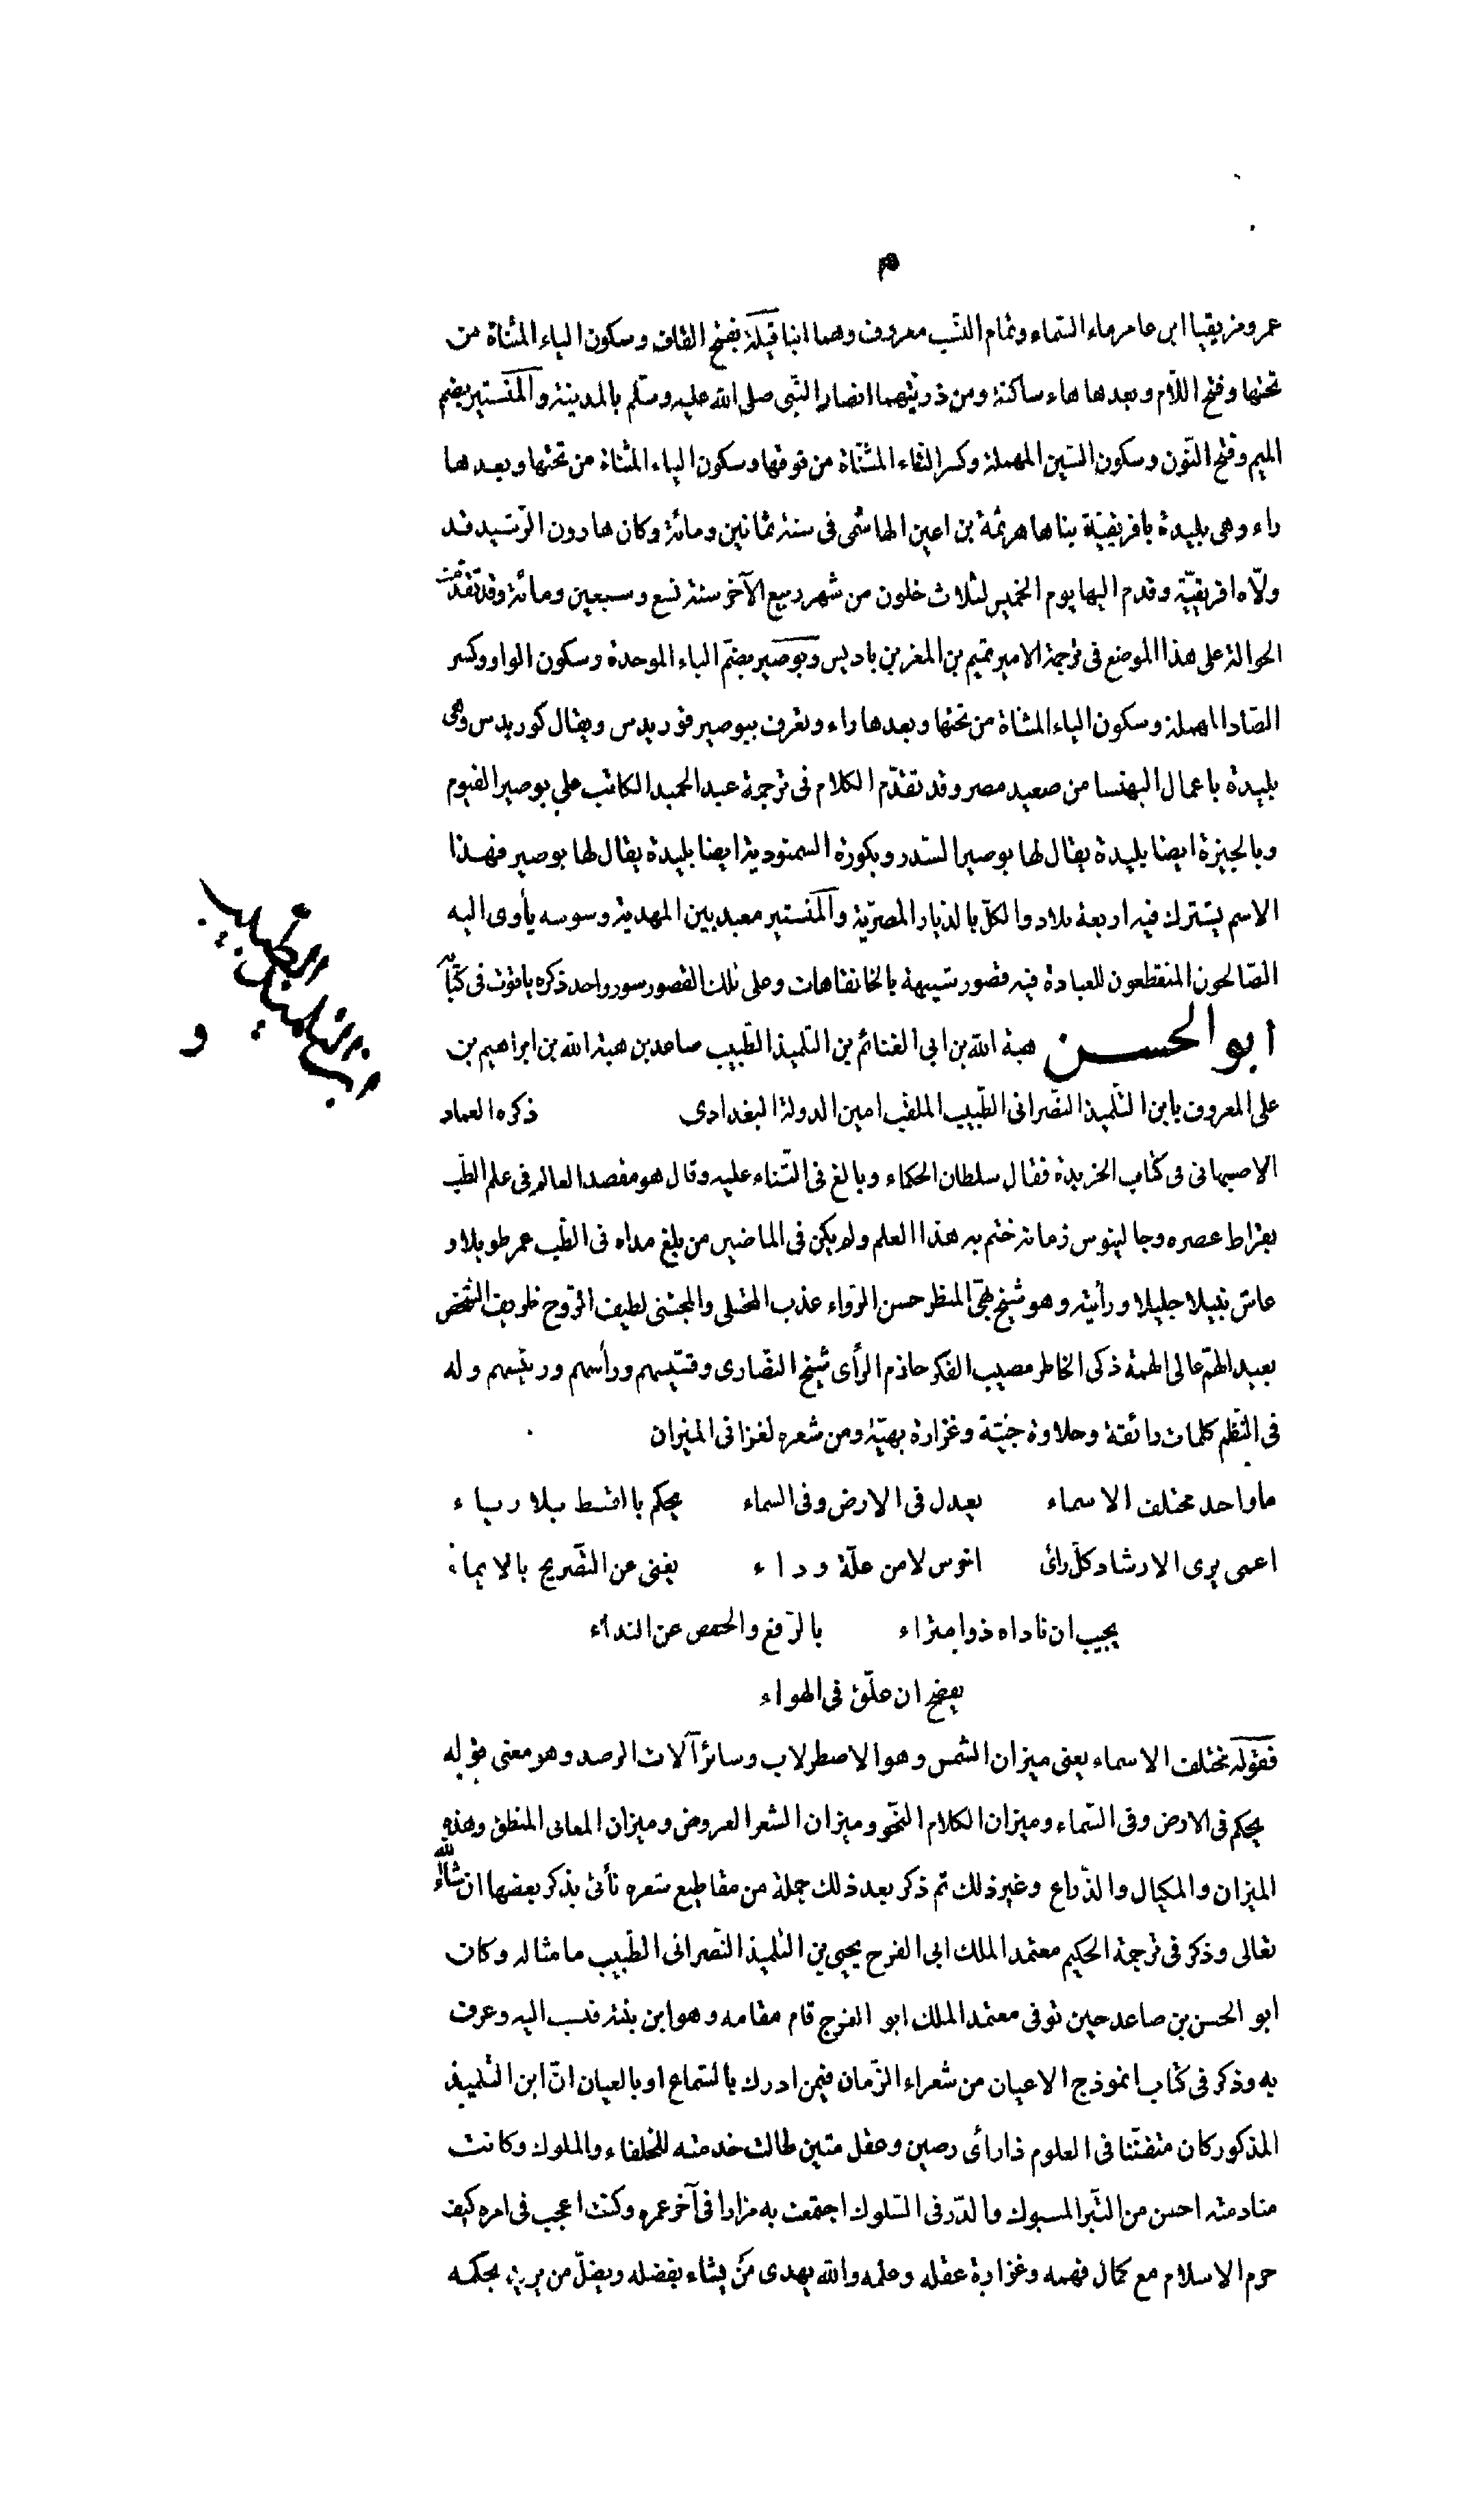 عمرو مزيقيا ابن عامر ماء السّماء وتمام النّسب معروف وهما ابنا قيلة بفتح القاف وسكون الياء المثناة من
تحتها وفتح اللّام وبعدها هاء ساكنة ومن ذريّتهما انصار النّبى صلى الله عليه وسلّم بالمدينة والمنستير بضم
الميم وفتح النّون وسكون السّين المهملة وكسر التّاء المثنّاة من فوقها وسكون الياء المثناة من تحتها وبعدها
راء وهى بليدة بافريقيّة بناها هرثمة بن اعين الهاشمى فى سنة ثمانين ومائة وكان هارون الرّشيد قد
ولّاه افريقيّة وقدم اليها يوم الخميس لثلاث خلون من شهر ربيع الآخر سنة تسع وسبعين ومائة وقد تقدّمت
الحوالة على هذا الموضع فى ترجمة الامير تميم بن المعز بن باديس وبوصير بضمّ الباء الموحدة وسكون الواو وكسر
الصّاد المهملة وسكون الياء المثناة من تحتها وبعدها راء وتعرف ببوصير قوريدس ويقال كوريدس وهى
بليدة باعمال البهنسا من صعيد مصر وقد تقدّم الكلام فى ترجمة عبد الحميد الكاتب على بوصير الفيوم
وبالجيزة ايضا بليدة يقال لها بوصير السّدر وبكورة السمنودية ايضا بليدة يقال لها بوصير فهذا
الاسم يشترك فيه اربعة بلاد والكلّ بالديار المصريّة والمنستير معبد بين المهدية وسوسه يأوى اليه
الصّالحون المنقطعون للعبادة فيه قصور شبيهة بالخانقاهات وعلى تلك القصور سور واحد ذكره ياقوت فى كتابه
ابو الحسن هبة الله بن ابى الغنائم بن التلميذ الطّبيب صاعد بن هبة الله بن ابراهيم بن
على المعروف بابن التلميذ النصرانى الطّبيب الملقب امين الدولة البغدادى ذكره العماد
ابن التلميذ الطبيب
و
الاصبهانى فى كتاب الخريدة فقال سلطان الحكماء وبالغ فى الثّناء عليه وقال هو مقصد العالم فى علم الطّب
بقراط عصره وجالينوس زمانه ختم به هذا العلم ولم يكن فى الماضين من بلغ مداه فى الطّب عمر طويلا و
عاش نبيلا جليلا ورأيته وهو شيخ بهىّ المنظر حسن الرّواء عذب المجتلى والمجتنى لطيف الرّوح ظريف الشخص
بعيد الهمّ عالى الهمة ذكى الخاطر مصيب الفكر حازم الرأى شيخ النصّارى وقسّيسهم ورأسهم ورئيسهم وله
فى النّظم كلمات رائقة وحلاوة جنيّة وغزارة بهيّة ومن شعره لغزا فى الميزان
ما واحد مختلف الاسماء يعدل فى الارض وفى السماء يحكم بالقسط بلا رياء
اعمى يرى الارشاد كلّ رائ اخرس لا من علّة وداء يغنى عن التّصريح بالايماء
يجيب ان ناداه ذو امتراء بالرّفع والخفض عن النداء
يفصح ان علّق فى الهواء
فقوله مختلف الاسماء يعنى ميزان الشمس وهو الاصطرلاب وسائر آلات الرصد وهو معنى قوله
يحكم فى الارض وفى السّماء وميزان الكلام النّحو وميزان الشعر العروض وميزان المعانى المنطق وهذه
الميزان والمكيال والذّراع وغير ذلك ثم ذكر بعد ذلك جملة من مقاطيع شعره نأتى بذكر بعضها ان شاء الله
تعالى وذكر فى ترجمة الحكيم معتمد الملك ابى الفرج يحيى بن التلميذ النّصرانى الطّبيب ما مثاله وكان
ابو الحسن بن صاعد حين توفى معتمد الملك ابو الفرج قام مقامه وهو ابن بنته فنسب اليه وعرف
به وذكر فى كتاب انموذج الاعيان من شعراء الزّمان فيمن ادرك بالسّماع او بالعيان انّ ابن التلميذ
المذكور كان متفنّنا فى العلوم ذا رأى رصين وعقل متين طالت خدمته للخلفاء والملوك وكانت
منادمته احسن من التّبر المسبوك والدّر فى السّلوك اجتمعت به مرارا فى آخر عمره وكنت اعجب فى امره كيف
حرم الاسلام مع كمال فهمه وغزارة عقله وعلمه والله يهدى من يشاء بفضله ويضلّ من يريد بحكمه